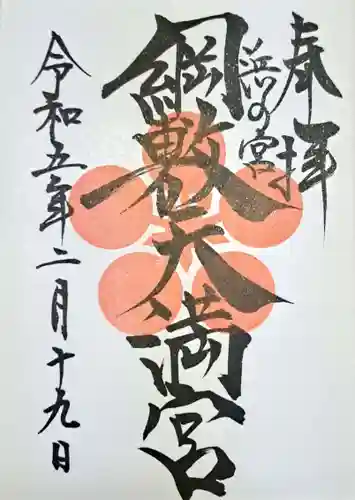 奉拝
浜の宮
綱敷天満宮
令和五年二月十九日